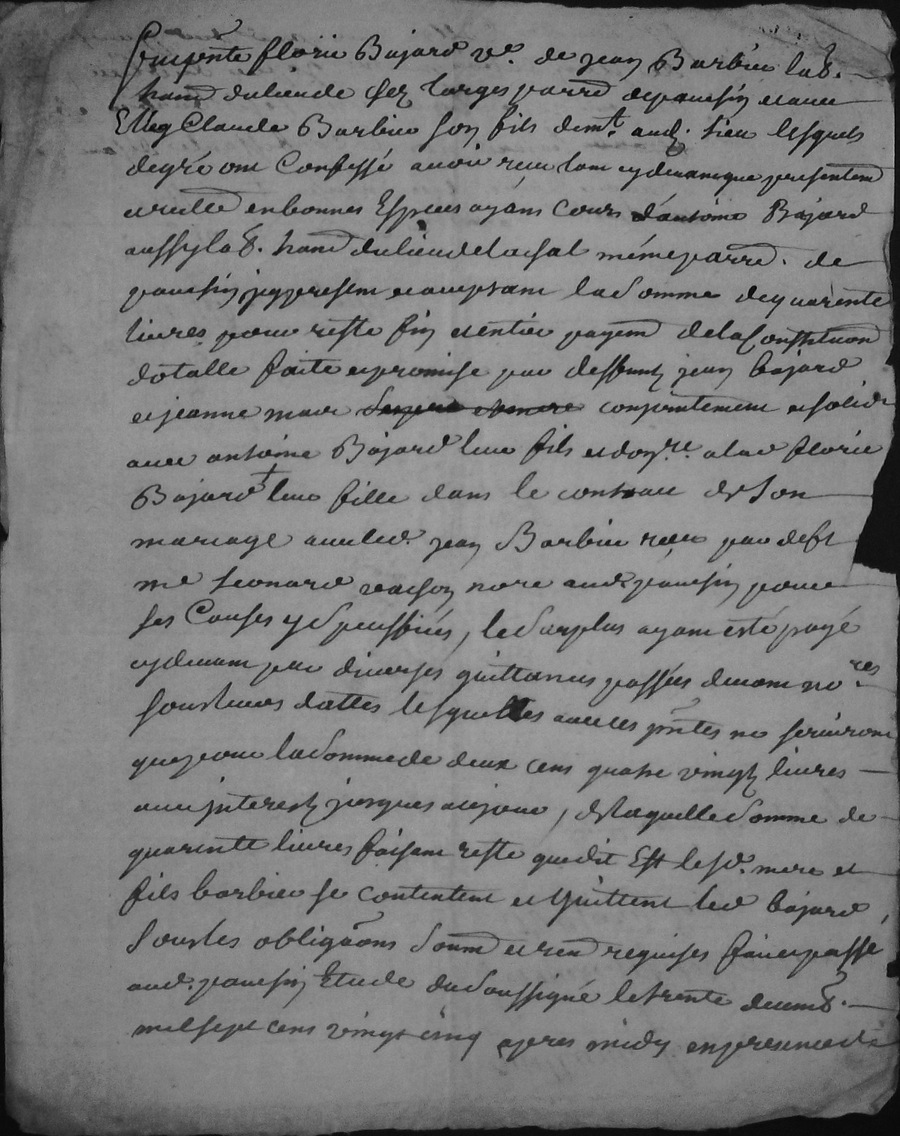 Constituée florie Bajard vve. de jean Barbier lab.
hand. du lieu de chez larges parre de panissiere et avec
Elle Claude Barbier son fils demt. aud. lieu lesquels
de gré ont Confessé avoir reçu tant cydevant que presentemt
et reellt en bonnes Especes ayans Cours d'antoine Bajard
aussy lab. hand du lieu de lachal même parre. de
panissiere present et acceptant la somme de quarente
livres pour reste fin et entier payemt de la Constitution
dotalle faite et promise par deffunts jean bajard
et jeanne mure conjointement et solid
avec antoine Bajard leur fils et donre. a lad florie
Bajard leur fille dans le contract de son
mariage avec led. jean Barbier reçu par deft
me Leonard notre aud. pour
les Causes y Speciffiées, le surplus ayant esté payé
cydevant par diverses quittances passées devant nores
sous leurs dattes lesquelles avec ces pntes ne serviront
que pour la somme de deux cens quatre vingts livres
avec interests jusques a ce jour, de laquelle somme de
quarente livres faisant reste que dit Est lesd. mere et
fils barbier se contentent et quittent led bajard,
Sous les obligãons soumõns et renõns requises fait et passé
aud. Etude du soussigné le trente decemb.
mil sept cens vingt cinq apres midy en presence de